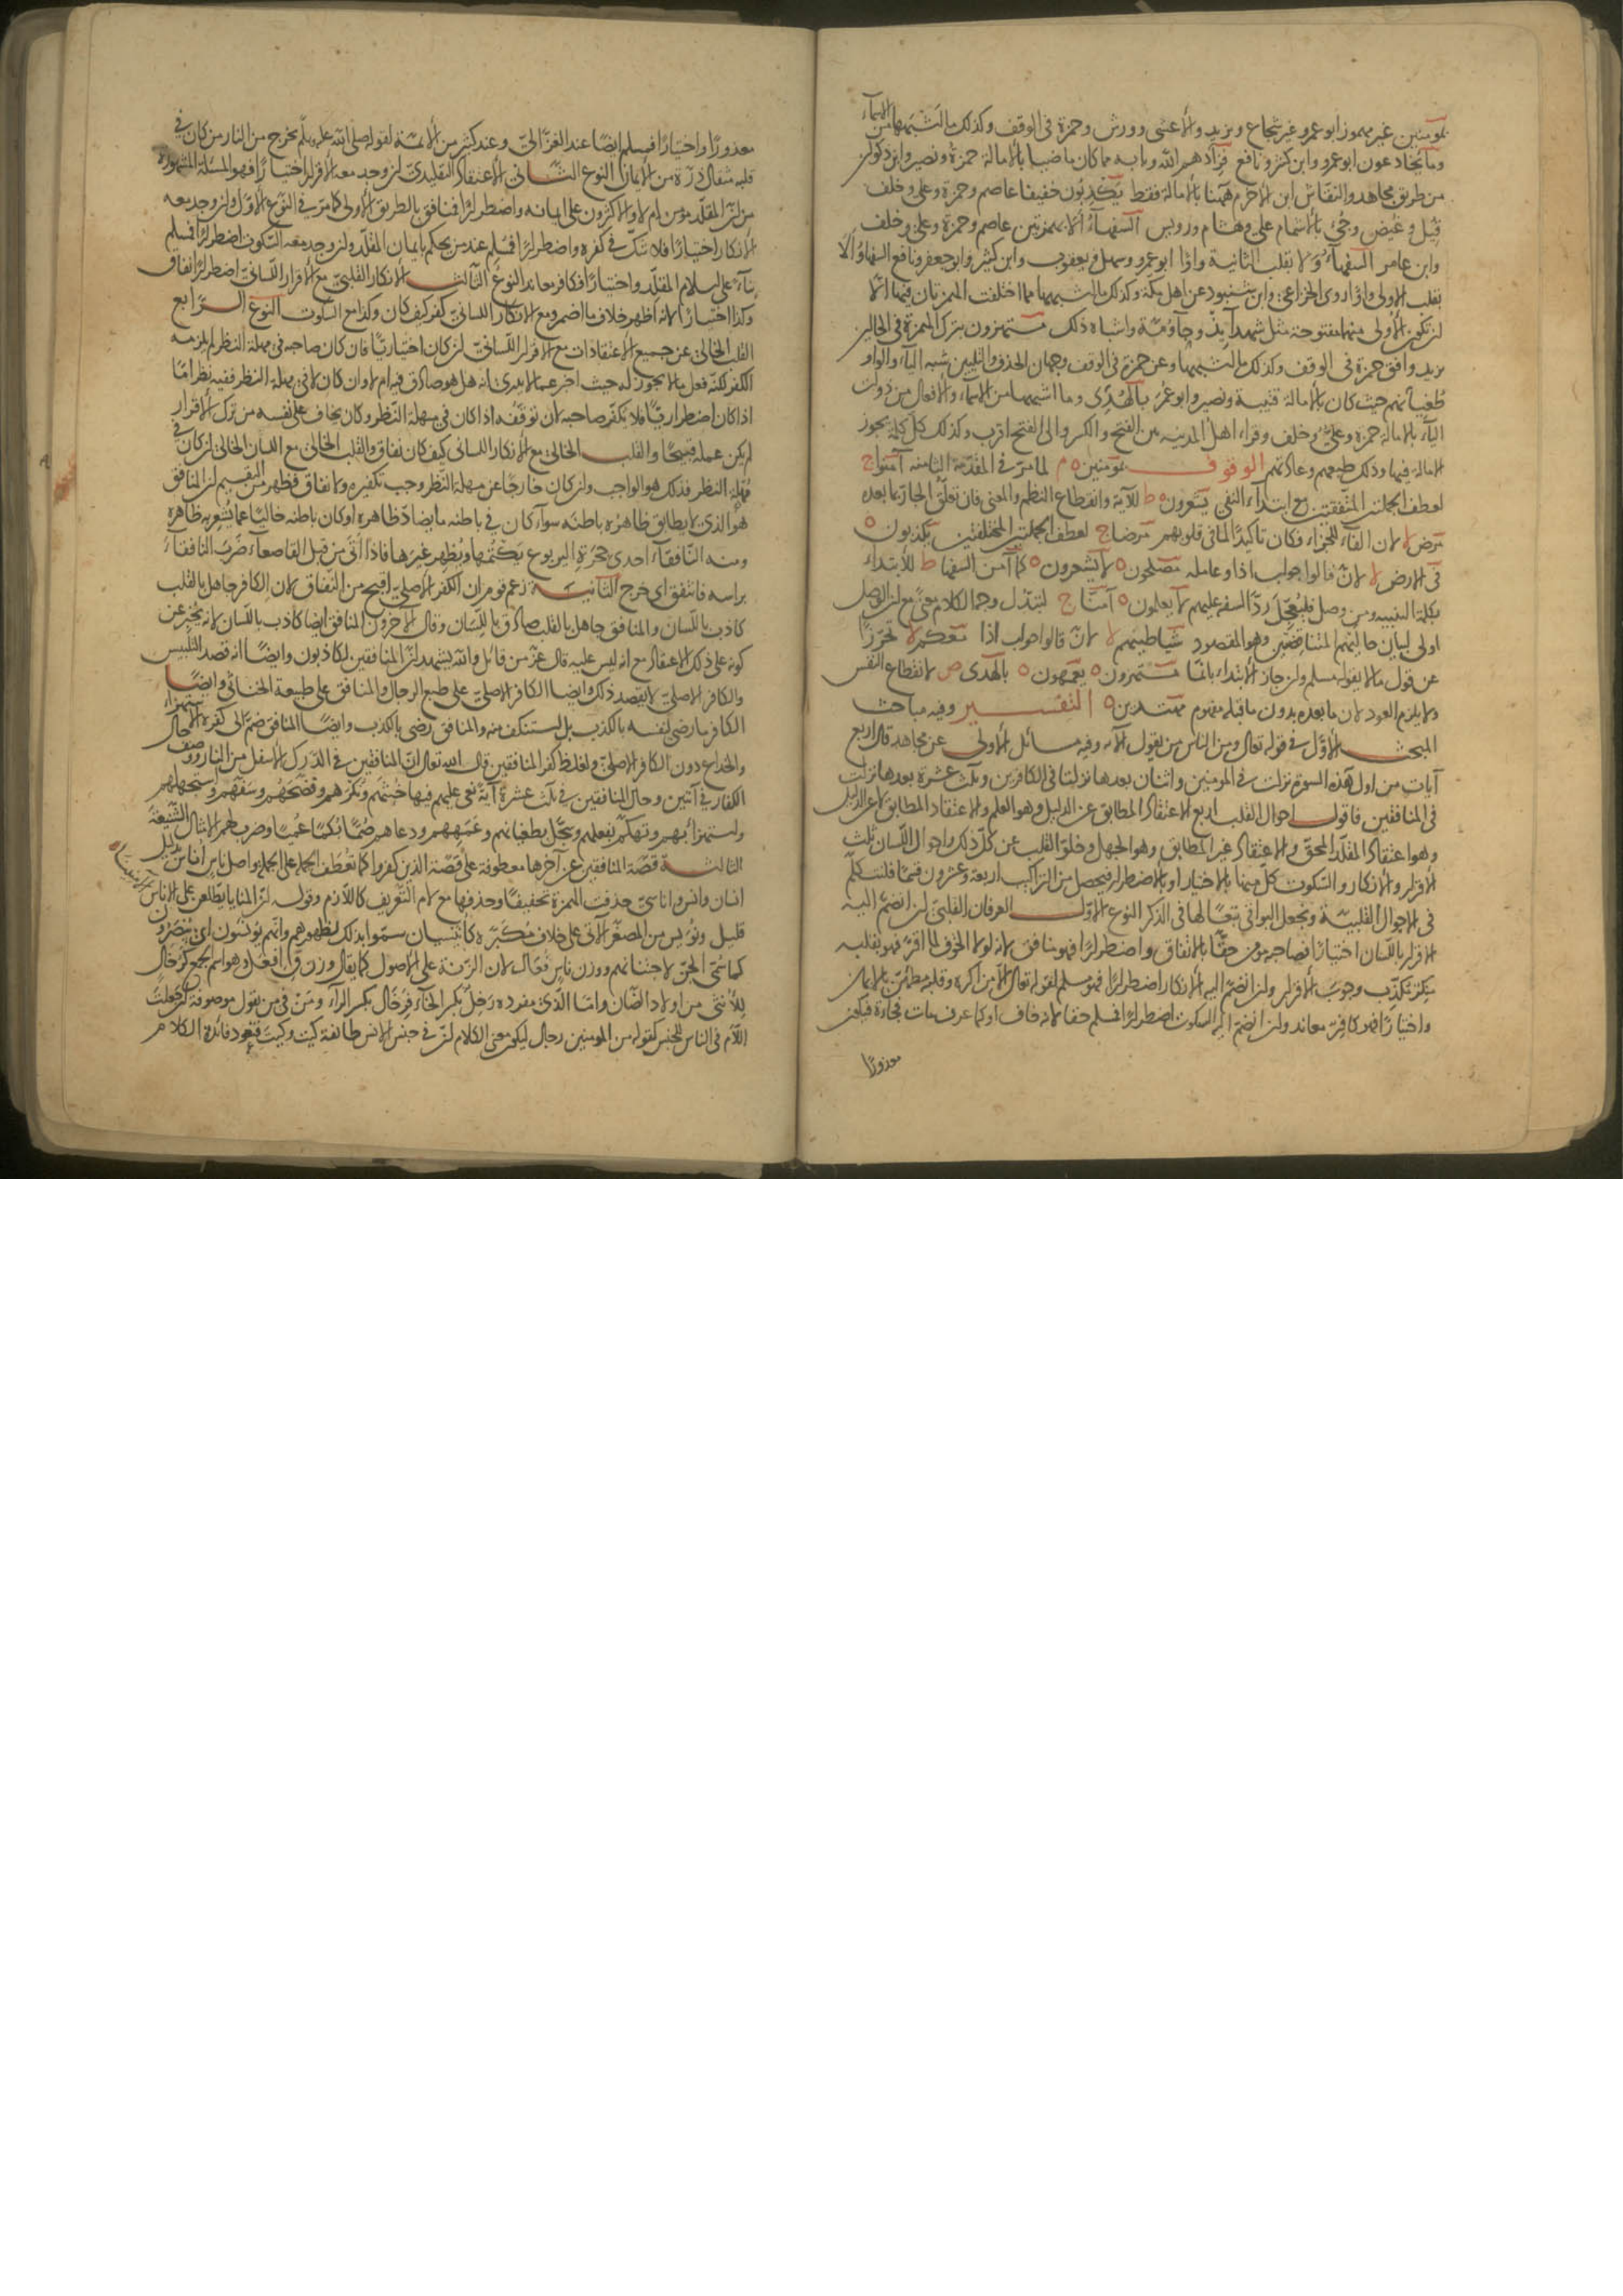 بمومنين غير مهموز ابو عمرو غير شجاع ويزيد والاعشى وورش وحمزة فى الوقف وكذلك ما اشبهها من الاسماء
وما يخادعون ابو عمرو وابن كثير ونافع فزادهم الله وبابه مما كان ماضيا بالامالة حمزة ونصير وابن ذكوان
من طريق مجاهد والنقاش ابن الاخرم ههنا بالامالة فقط يكذبون خفيفا عاصم وحمزة وعلى وخلف
قيل وغيض وجئ بالاشمام على وهشام ورويس السفهاء ألا بهمزتين عاصم وحمزة وعلى وخلف
وابن عامر السفهاء ولا بقلب الثانية واوا ابو عمرو وسهل ويعقوب وابن كثير وابو جعفر ونافع السفهاو ألا
بقلب الاولى واوا روى الخزاعى وابن شنبوذ عن اهل مكة وكذلك ما اشبهها مما اختلفت الهمزتان فيها الا
ان تكون الاولى منهما مفتوحة مثل شهداء اذ وجاء امة واشباه ذلك مستهزون بترك الهمزة فى الحالين
يزيد وافق حمزة فى الوقف وكذلك ما اشبهها وعن حمزة فى الوقف وجهان الحذف والتليين شبه الياء والواو
طغيانهم حيث كان بالامالة قتيبة ونصير وابو عمر بالهدى وما اشبهها من الاسماء والافعال من ذوات
الياء بالامالة حمزة وعلى وخلف وقراء اهل المدينه بين الفتح والكسر والى الفتح اقرب وكذلك كل كلمة يجوز
الامالة فيها وذلك طبعهم وعادتهم الوقوف بمومنين م لما مر فى المقدمة الثامنه آمنوا ج
لعطف الجملتين المتفقتين مع ابتداء النفى يشعرون ط للآية وانقطاع النظم والمعنى فان تعلق الجار بما بعده
مرض لا لان الفاء للجزاء فكان تاكيدا لما فى قلوبهم مرضا ج لعطف الجملتين المختلفتين يكذبون
فى الارض لا لان قالوا جواب اذا وعامله مصلحون لا يشعرون كما آمن السفها ط للابتداء
بكلمة التنبيه ومن وصل فليعجل رد السفه عليهم لا يعلمون آمنا ج لتبدل وجه الكلام معنى مع ان الوصل
اولى لبيان حالتيهم المتناقضتين وهو المقصود شياطينهم لا لان قالوا جواب اذا معكم لا تحرزا
عن قول ما لا يقوله مسلم وان جاز الابتداء بانما مستهزون يعمهون بالهدى ص لانقطاع النفس
ولا يلزم العود لان ما بعده بدون ما قبله مفهوم مهتدين التفسير وفيه مباحث
المبحث الاول فى قوله تعالى ومن الناس من يقول الآيه وفيه مسائل الاولى عن مجاهد قال اربع
آيات من اول هذه السورة نزلت فى المومنين واثنان بعدها نزلتا فى الكافرين وثلث عشرة بعدها نزلت
فى المنافقين فاقول احوال القلب اربع الاعتقاد المطابق عن الدليل وهو العلم والاعتقاد المطابق لا عن الدليل
وهو اعتقاد المقلد المحق والاعتقاد غير المطابق وهو الجهل وخلو القلب عن كل ذلك واحوال اللسان ثلث
الاقرار والانكار والسكوت كل منها بالاختيار او بالاضطرار فيحصل من التراكيب اربعة وعشرون قسما فلنتكلم
فى الاحوال القلبية ونجعل البواقى تبعا لها فى الذكر النوع الاول العرفان القلبى لئن انضم اليه
الاقرار باللسان اختيارا فصاحبه مومن حقا بالاتفاق واضطرارا فهو منافق لانه لولا الخوف لما اقر فهو بقلبه
منكر مكذب وجوب الاقرار ولئن انضم اليه الانكار اضطرارا فهو مسلم لقوله تعالى الا من اكره وقلبه مطمئن بالايمان
واختيارا فهو كافر معاند ولئن انضم اليه السكوت اضطرارا فمسلم حقا لانه خاف او كما عرف مات فجاءة فيكون
معذورا
معذورا واختيارا فمسلم ايضا عند الغزالى وعند كثير من الائمة لقوله صلى الله عليه وسلم يخرج من النار من كان فى
قلبه مثقال ذرة من الايمان النوع الثانى الاعتقاد التقليدى ان وجد معه الاقرار اختيارا فهو المسئلة المشهورة
من ان المقلد مومن ام لا والاكثرون على ايمانه واضطرارا فمنافق بالطريق الاولى كما مر فى النوع الاول وان وجد معه
الانكار اختيارا فلا شك فى كفره واضطرارا فمسلم عند من يحكم بايمان المقلد وان وجد معه السكوت اضطرارا فمسلم
بناء على اسلام المقلد واختيارا فكافر معاند النوع الثالث الانكار القلبى مع الاقرار اللسانى اضطرارا نفاق
وكذا اختيارا لانه اظهر خلاف ما اضمر ومع الانكار اللسانى كفر كيف كان وكذا مع السكوت النوع الرابع
القلب الخالى عن جميع الاعتقادات مع الاقرار اللسانى ان كان اختياريا فان كان صاحبه فى مهلة النظر لم يلزمه
الكفر لكنه فعل ما لا يجوز له حيث اخبر عما لا يدرى انه هل هو صادق فيه ام لا وان كان لا فى مهلة النظر ففيه نظر اما
اذا كان اضطراريا فلا يكفر صاحبه لان توقفه اذا كان فى مهلة النظر وكان يخاف على نفسه من ترك الاقرار
لم يكن عمله قبيحا والقلب الخالى مع الانكار اللسانى كيف كان نفاق والقلب الخالى مع اللسان الخالى ان كان فى
مهلة النظر فذلك هو الواجب وان كان خارجا عن مهلة النظر وجب تكفيره ولا نفاق فظهر من التقسيم ان المنافق
هو الذى لا يطابق ظاهره باطنه سواء كان فى باطنه ما يضاد ظاهره او كان باطنه خاليا عما يشعر به ظاهره
ومنه النافقاء احدى جحرة اليربوع يكتمها ويظهر غيرها فاذا اتى من قبل القاصعاء ضرب النافقاء
براسه فانتفق اى خرج الثانية زعم قوم ان الكفر الاصلى اقبح من النفاق لان الكافر جاهل بالقلب
كاذب باللسان والمنافق جاهل بالقلب صادق باللسان وقال الآخرون المنافق ايضا كاذب باللسان لانه يخبر عن
كونه على ذلك الاعتقاد مع انه ليس عليه قال عز من قائل والله يشهد ان المنافقين لكاذبون وايضا انه قصد التلبيس
والكافر الاصلى لا يقصد ذلك وايضا الكافر الاصلى على طبع الرجال والمنافق على طبيعة الخناثى وايضا
الكافر ما رضى لنفسه بالكذب بل استنكف منه والمنافق رضى بالكذب وايضا المنافق ضم الى كفره الاستهزاء
والخداع دون الكافر الاصلى ولغلظ كفر المنافقين قال الله تعالى ان المنافقين فى الدرك الاسفل من النار ووصف حال
الكفار فى آيتين وحال المنافقين فى ثلث عشرة آية نعى عليهم فيها خبثهم ونكرهم وفضحهم وسفههم واستجهلهم
واستهزأ بهم وتهكم بفعلهم وسجل بطغيانهم وعمههم ودعاهم صما بكما عميا وضرب لهم الامثال الشنيعة
الثالثة قصة المنافقين عن آخرها معطوفة على قصة الذين كفروا كما تعطف الجملة على الجملة واصل ناس اناس بدليل
انسان وانس واناسى حذفت الهمزة تخفيفا وحذفها مع لام التعريف كاللازم وقوله ان المنايا يطلعن على الاناس الآمنينا
قليل ونويس من المصغر الآتى على خلاف مكبره كانيسيان سموا بذلك لظهورهم وانهم يونسون اى يبصرون
كما سمى الجن لاجتنانهم ووزن ناس فعال لان الزنة على الاصول كما يقال وزن ق افعل وهو اسم جمع كرخال
للانثى من اولاد الضان واما الذى مفرده رخل بكسر الخاء فرخال بكسر الراء ومن فى من يقول موصوفة ان جعلت
اللام فى الناس للجنس كقوله من المومنين رجال ليكون معنى الكلام ان فى جنس الانس طائفة كيت وكيت فتعود فائدة الكلام